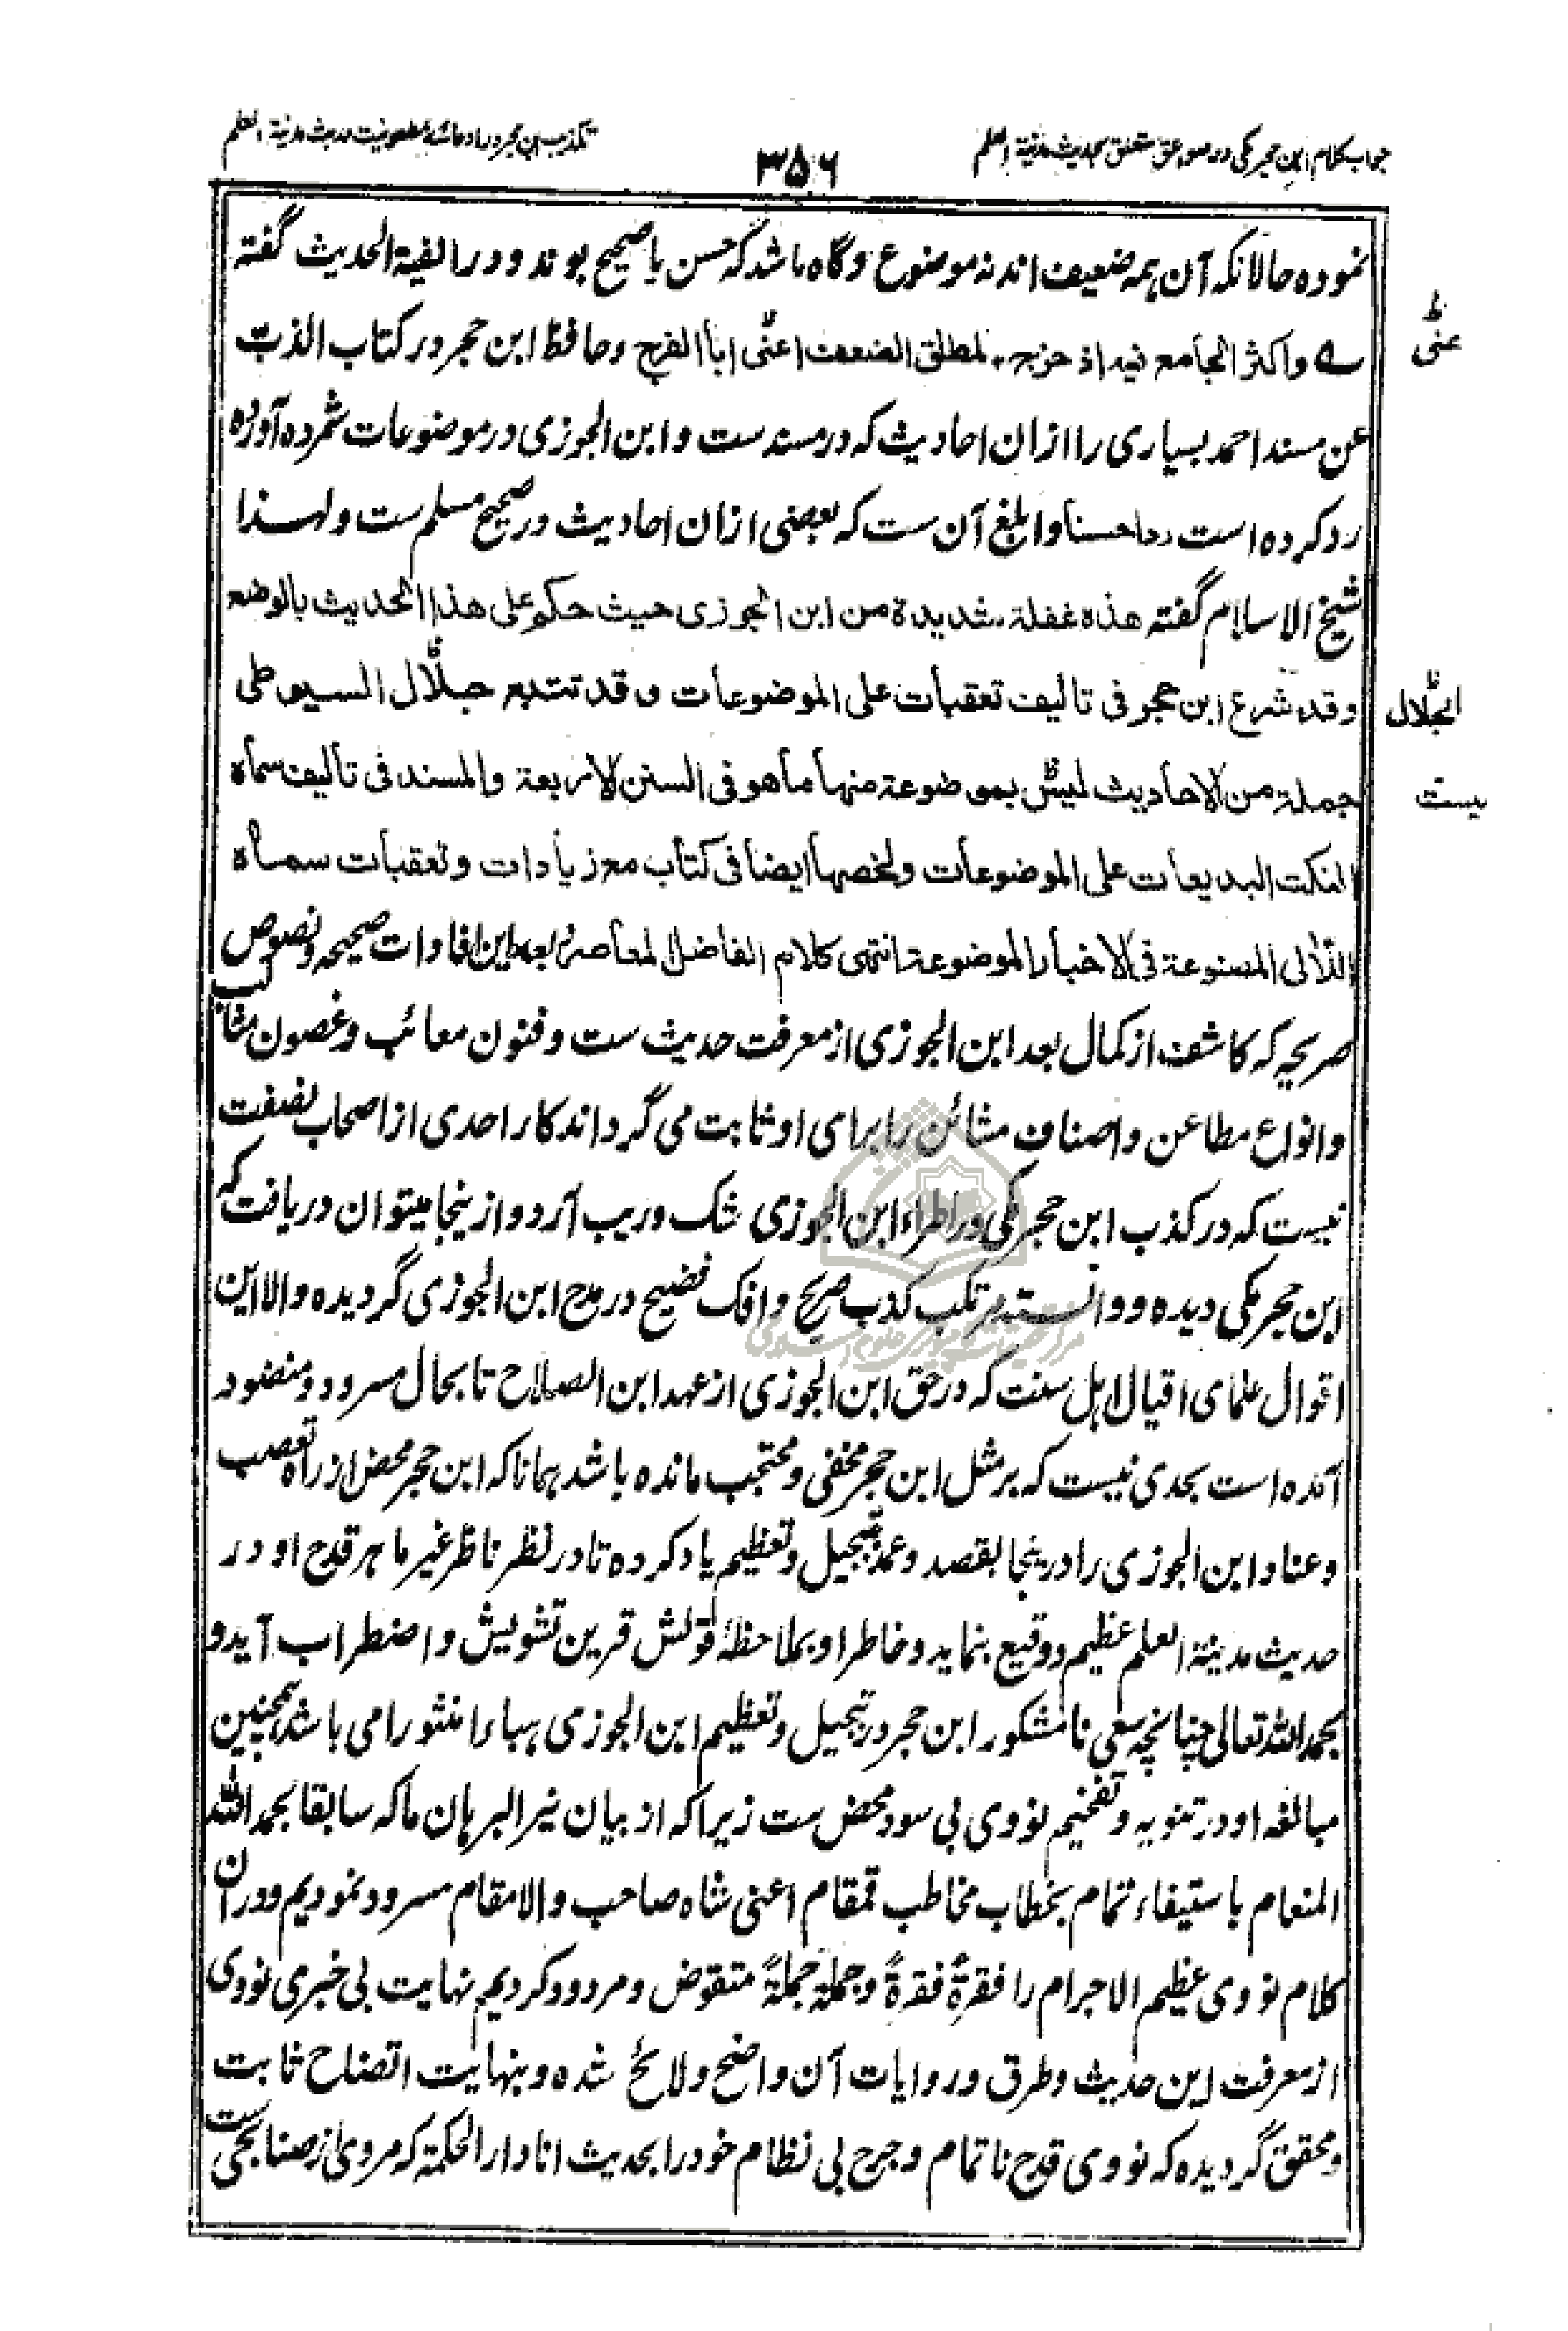 جواب کلام ابن حجر مکی در صواعق متعلق بحدیث مدینة العلم
۳۵۶
تکذیب ابن حجر در ادعائه مطعونیت حدیث مدینة العلم
نموده حالانکه آن همه ضعیف اند نه موضوع وگاه باشد که حسن یا صحیح بوند و در الفیة الحدیث گفته
ے واکثر الجامع فیه اذ خرج. لمطلق الضعف اعنّی اباالفرج وحافظ ابن حجر در کتاب الذبّ
عن مسند احمد بسیاری را ازان احادیث که در مسندست و ابن الجوزی در موضوعات شمرده آورده
رد کرده است ردا حسنا وابلغ آن ست که بعضی ازان احادیث در صحیح مسلم ست ولهذا
شیخ الاسلام گفته هذه غفلة شدیدة من ابن الجوزی حیث حکم علی هذا الحدیث بالوضع
وقد شرع ابن حجر فی تالیف تعقبات علی الموضوعات وقد تتبع جلّال السیوطی
جملة من الاحادیث لیس بموضوعة منها ما هو فی السنن الاربعة والمسند فی تالیف سماه
النکت البدیعات علی الموضوعات ولخصها ایضا فی کتاب مع زیادات وتعقبات سماه
اللآلی المصنوعة فی الاخبار الموضوعة انتهی کلام الفاضل المعاصر بعد این افادات صحیحه ونصوص
صریحه که کاشف از کمال بعد ابن الجوزی از معرفت حدیث ست وفنون معائب وغصون مثالب
وانواع مطاعن واصناف مشائن را برای او ثابت می گرداند کار احدی از اصحاب نصفت
نیست که در کذب ابن حجر مکی در اطراء ابن الجوزی شک وریب آرد وازینجا میتوان دریافت که
ابن حجر مکی دیده ودانسته مرتکب کذب صریح وافک فضیح در مدح ابن الجوزی گردیده والا این
اقوال علمای اقیال اہل سنت که در حق ابن الجوزی از عهد ابن الصلاح تا بحال مسرود ومنضود
آمده است بحدی نیست که بر مثل ابن حجر مخفی ومحتجب مانده باشد همانا که ابن حجر محض از راه تعصب
وعناد ابن الجوزی را درینجا بقصد وعمد بتبجیل وتعظیم یاد کرده تا در نظر ناظر غیر ماهر قدح او در
حدیث مدینة العلم عظیم ووقیع بنماید وخاطر او بملاحظهٔ قولش قرین تشویش واضطراب آید و
بحمد الله تعالی چنانچه سعی نامشکور ابن حجر در تبجیل وتعظیم ابن الجوزی هباء منثورا می باشد همچنین
مبالغه او در تنویه وتفخیم نووی بی سود محض ست زیرا که از بیان نیر البرهان ما که سابقا بحمد الله
المنعام باستیفاء تمام بخطاب مخاطب قمقام اعنی شاه صاحب والامقام مسرود نمودیم ودران
کلام نووی عظیم الاجرام را فقرةً فقرةً وجملةً جملةً منقوض ومردود کردیم نهایت بی خبری نووی
از معرفت این حدیث وطرق وروایات آن واضح ولائح شده وبنهایت اتضاح ثابت
ومحقق گردیده که نووی قدح ناتمام وجرح بی نظام خود را بحدیث انا دار الحکمة که مروی از صنابحی ست
ظ
عنی
ظ
الجلال
لیست